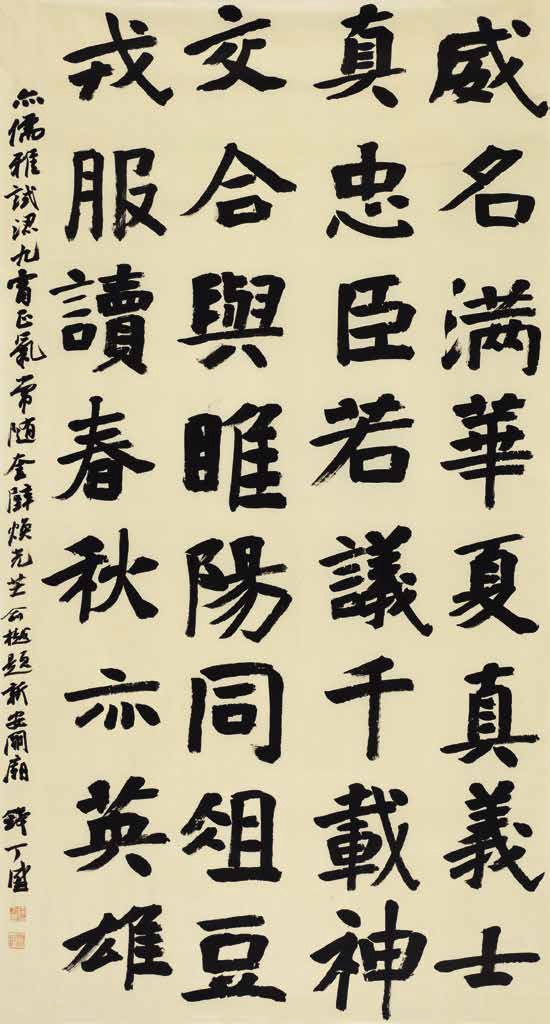 威名满華夏真義士
真忠臣若議千載神
交合與睢陽同俎豆
戎服讀春秋亦英雄
亦儒雅試認九霄正氣常随奎壁煥光芒 題新安關廟 丁盛